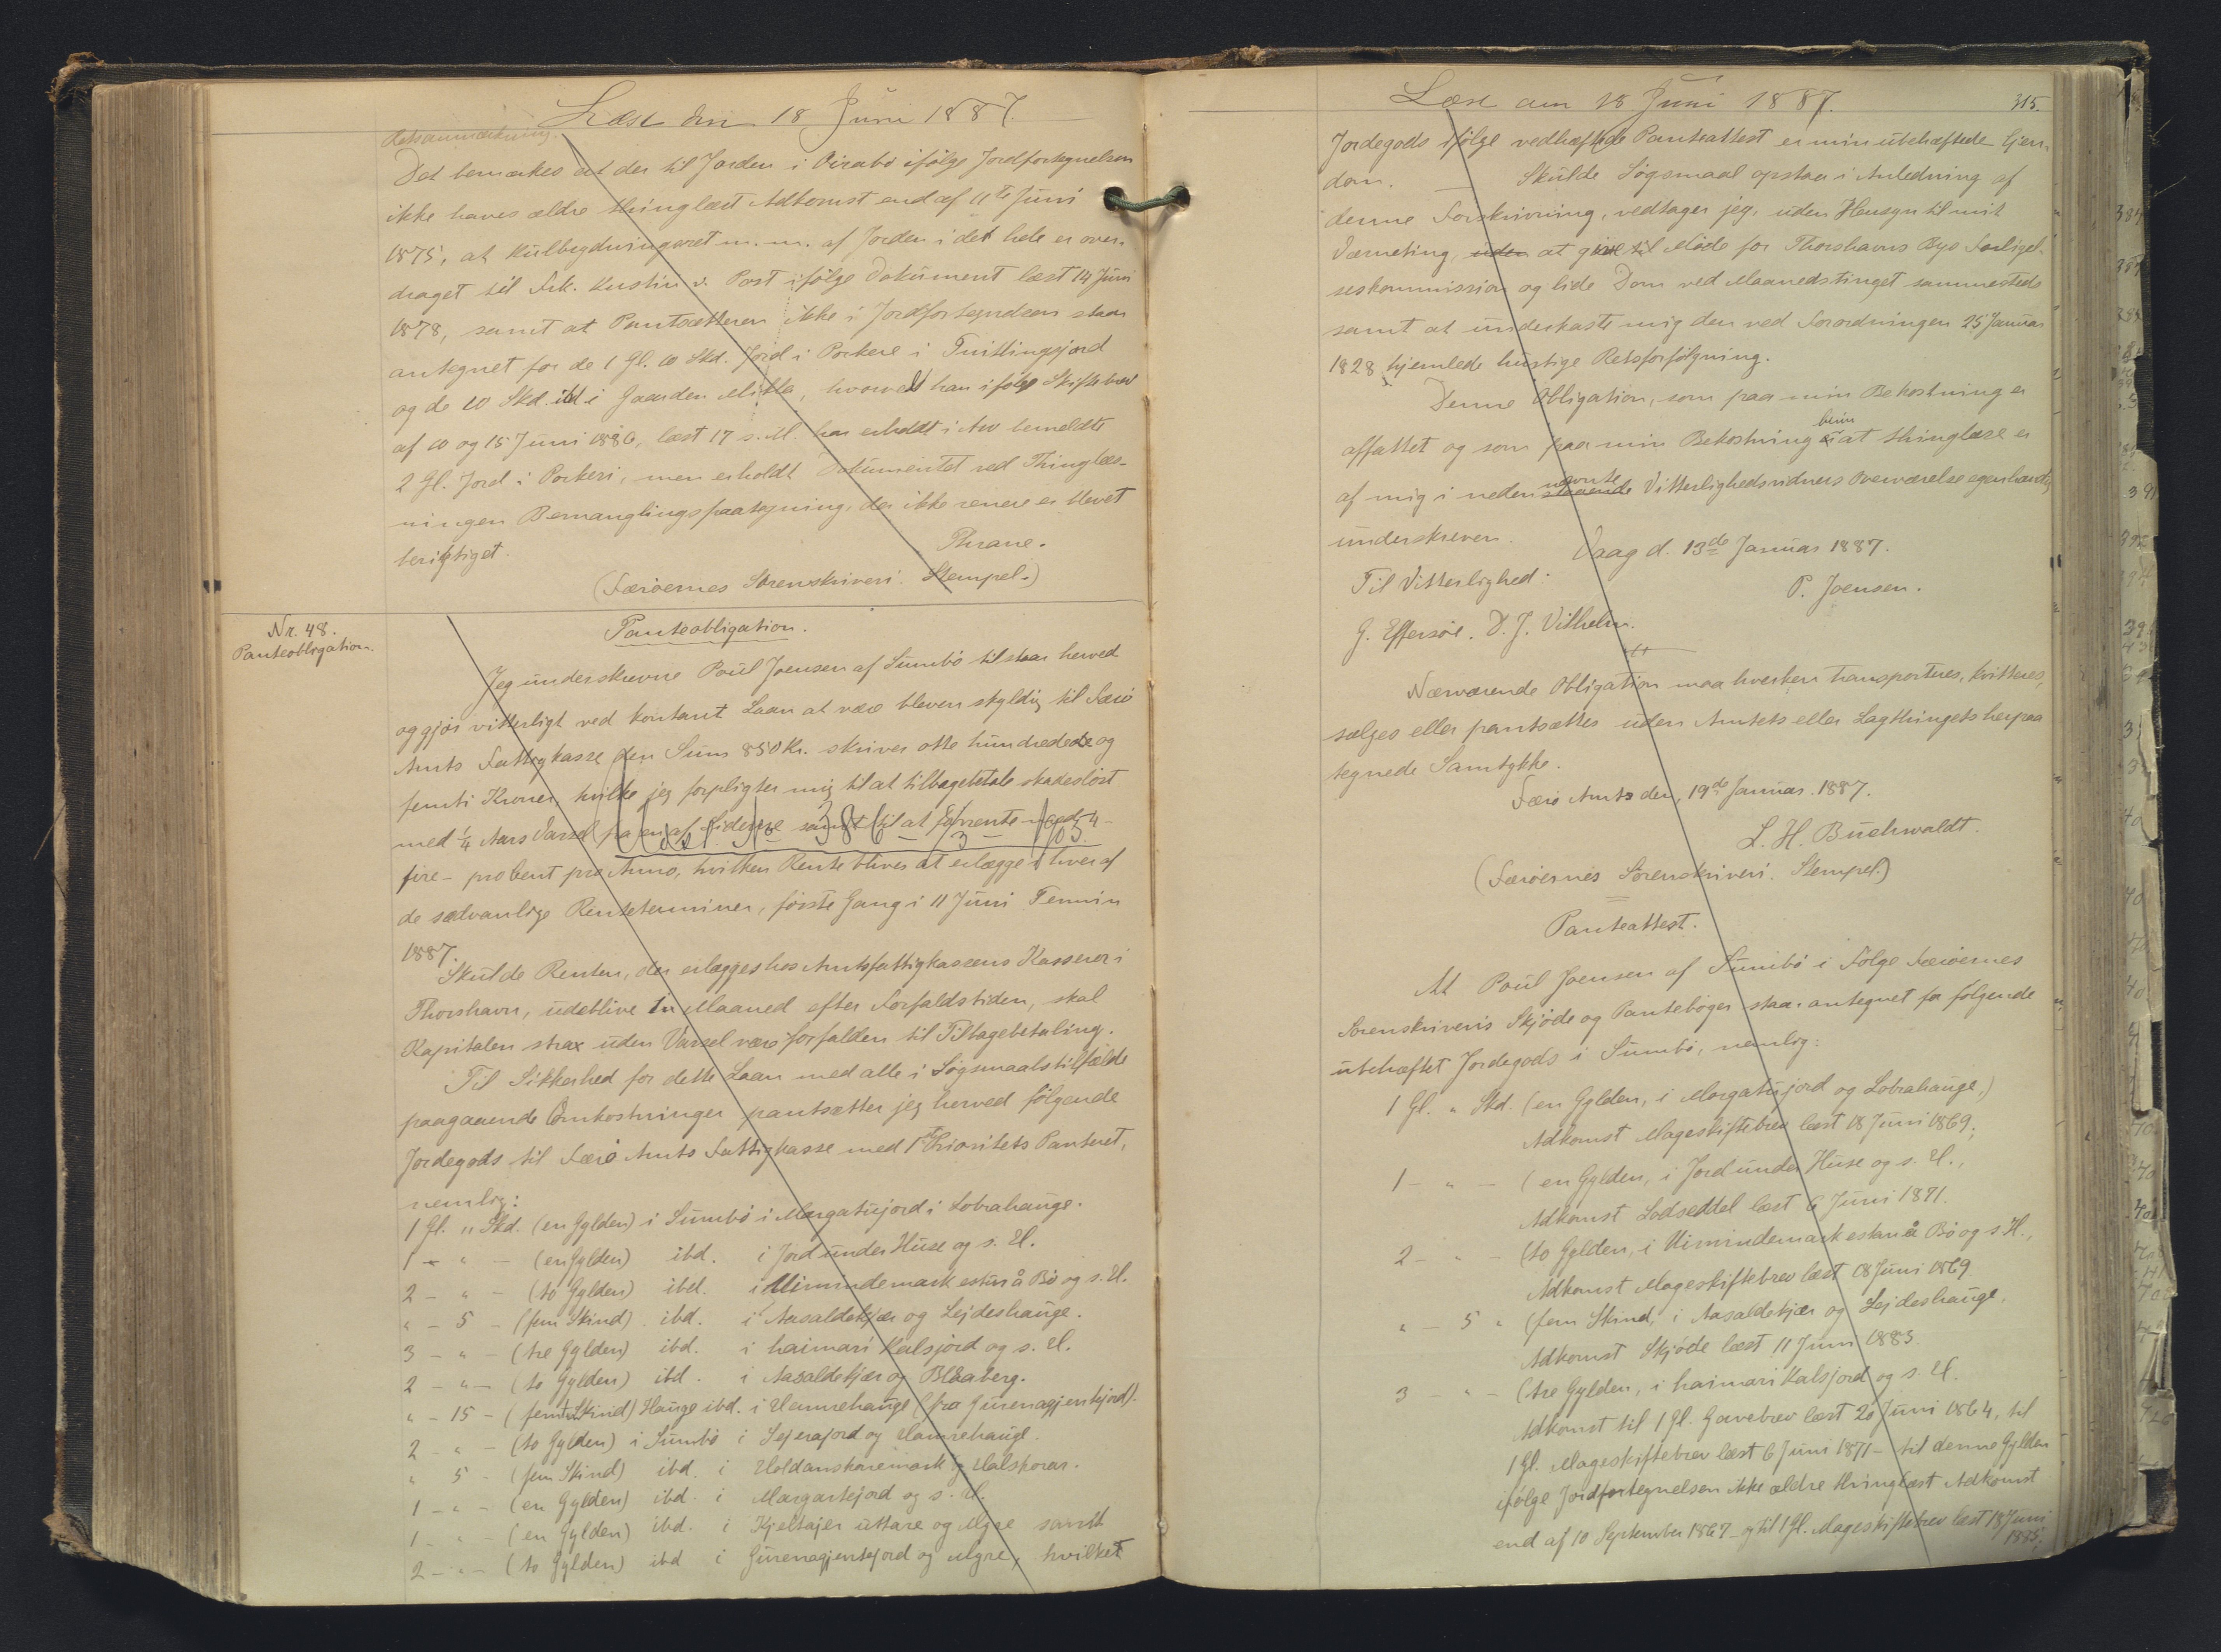 Læst den 18 Juni 1887.
Retsanmærkning.
Det bemærkes at der til Jorden i Ørabø ifølge Jordfortegnelsen
ikke haves ældre thinglæst Adkomst end af 11te Juni
1875, at Kulbrydningsret m. m. af Jorden i det hele er over-
draget til Frk. Kustin v. Post ifølge Dokument læst 14 Juni
1878, samt at Pantsætteren ikke i Jordfortegnelsen staar
antegnet for de 1 Gl. 10 Skd. Jord i Porkere i Tuitlingsjord
og de 10 Skd. ibd i Gaarden Mikla, hvorved han ifølge Skiftebrev
af 10 og 15 Juni 1886, læst 17 s. M. har erholdt i Arv bemeldte
2 Gl. Jord i Porkeri, men erholdt Dokumentet ved Thinglæs-
ningen Bemanglingspaategning, der ikke senere er blevet
berigtiget.
Thrane.
(Færøernes Sorenskriveri. Stempel.)
Nr. 48.
Panteobligation.
Panteobligation.
Jeg underskrevne Poul Joensen af Sumbø tilstaar herved
og gjør vitterligt ved kontant Laan at være bleven skyldig til Færø
Amts Fattigkasse den Sum 850 Kr. skriver otte hundrede og
femti Kroner, hvilke jeg forpligter mig til at tilbagebetale skadesløst
med ¼ Aars Varsel fra en af Siderne samt til at forrente med 4 -
Udsl. N 386 - 3 - 105.
fire - procent pro Anno, hvilken Rente bliver at erlægge i hver af
de sædvanlige Renteterminer, første Gang i 11 Juni Termin
1887.
Skulde Renten, der erlægges hos Amtsfattigkassens Kasserer i
Thorshavn, udeblive En Maaned efter Forfaldstiden, skal
Kapitalen strax uden Varsel være forfalden til Tilbagebetaling.
Til Sikkerhed for dette Laan med alle i Søgsmaalstilfælde
paagaaende Omkostninger pantsætter jeg herved følgende
Jordegods til Færø Amts Fattigkasse med 1ste Prioritets Panteret,
nemlig:
1 Gl. " Skd. (en Gylden) i Sumbø i Margatujord i Lobrahauge.
1 - " - (en Gylden) ibd. i Jord under Huse og s. H.
2 - " - (to Gylden) ibd. i Uimindemark estur å Bø og s. H.
" - 5 - (fem Skind) ibd. i Aasaldekjær og Lejdeshauge.
3 - " - (tre Gylden) ibd. i haimari Kalsjord og s. H.
2 - " - (to Gylden) ibd. i Aasaldekjær og Blaaberg.
" - 15 - (femten Skind) Hauge ibd. i Hamrehauge (fra Gurenagjerdsjord).
2 - " - (to Gylden) i Sumbø i Lejerajord og Hamrehauge.
" 5 - (fem Skind) ibd. i Holdanskoremark og Halskorar.
1 - " - (en Gylden) ibd. i Margartejord og s. H.
1 - " - (en Gylden) ibd. i Kjeltajer uttare og Mgre samt
2 - " - (to Gylden) ibd i Gurenagjerdsjord og Mgre, hvilket
Læst den 18 Juni 1887.
315.
Jordegods ifølge vedhæftede Panteattest er min ubehæftede Ejen-
dom. — Skulde Søgsmaal opstaa i Anledning af
denne Forskrivning, vedtager jeg, uden Hensyn til mit
Værneting, uden at give til Møde for Thorshavns Bys Forligel-
seskommission og lide Dom ved Maanedstinget sammesteds
samt at underkaste mig den ved Forordningen 25 Januar
1828 hjemlede hurtige Retsforfølgning.
Denne Obligation, som paa min Bekostning er
affattet og som paa min Bekostning bliver at thinglæse er
af mig i nedennævnte Vitterlighedsvidners Overværelse egenhændig
underskreven.
Vaag d. 13de Januar 1887.
Til Vitterlighed:
P. Joensen.
G. Effersøe. D. J. Vilhelm.
Nærværende Obligation maa hverken transporteres, kvitteres,
sælges eller pantsættes uden Amtets eller Lagthingets herpaa
tegnede Samtykke.
Færø Amts den, 19de Januar. 1887.
L. H. Buchwaldt.
(Færøernes Sorenskriveri. Stempel.)
Panteattest.
At Poul Joensen af Sumbø i Følge Færøernes
Sorenskriveris Skjøde og Pantebøger staar antegnet for følgende
ubehæftet Jordegods i Sumbø, nemlig:
1 Gl. " Skd. (en Gylden, i Margatujord og Lobrahauge,)
Adkomst Mageskiftebrev læst 18 Juni 1869;
1 - " - (en Gylden, i Jord under Huse og s. H.,
Adkomst Lodseddel læst 6 Juni 1871.
2 - " - (to Gylden, i Uimindemark estur å Bø og s. H.,
Adkomst Mageskiftebrev læst 18 Juni 1869
" - 5 " (fem Skind, i Aasaldekjær og Lejdeshauge.
Adkomst Skjøde læst 11 Juni 1883
3 - " - (tre Gylden, i haimari Kalsjord og s. H.
Adkomst til 1 Gl. Gavebrev læst 20 Juni 1864, til
1 Gl. Mageskiftebrev læst 6 Juni 1871 - til denne Gylden
ifølge Jordfortegnelsen ikke ældre thinglæst Adkomst
end af 10 September 1867 - og til 1 Gl. Mageskiftebrev læst 18 Juni
1885;